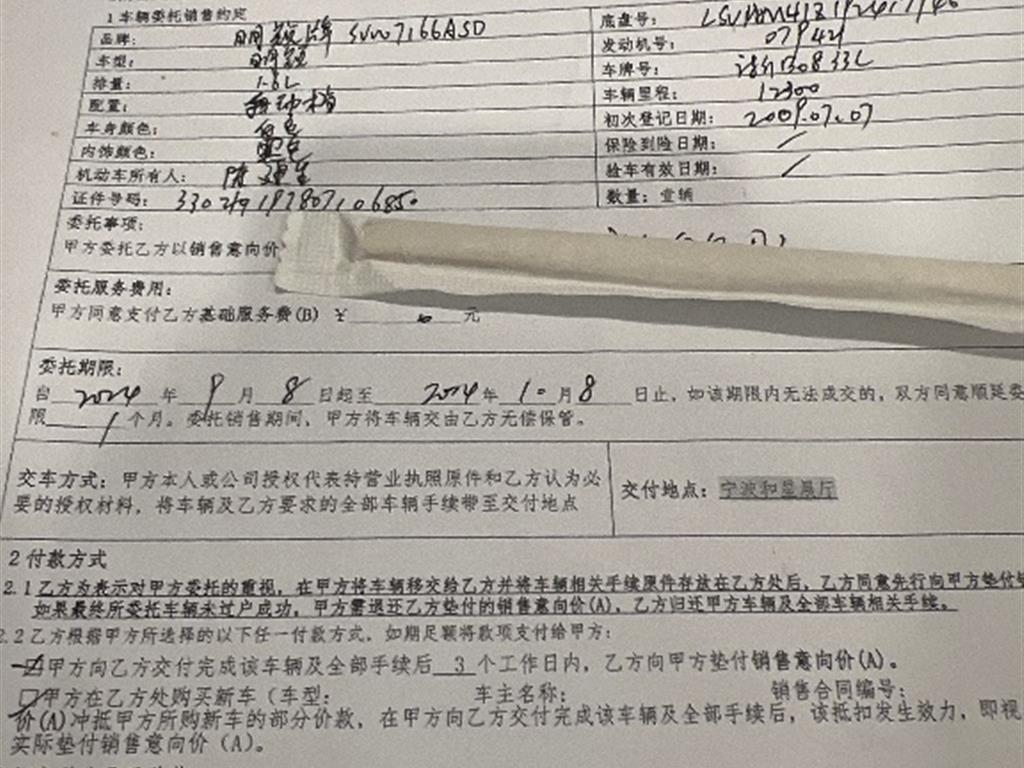 1 车辆委托销售约定
品牌: 明锐牌 SVW7166ASD
底盘号:
车型: 明锐
发动机号: 07942
排量: 1.6L
车牌号:
配置:
车辆里程: 12300
车身颜色: 白色
初次登记日期: 2009.07.07
内饰颜色: 黑色
保险到险日期: /
机动车所有人:
验车有效日期: /
证件号码:
数量: 壹辆
委托事项:
甲方委托乙方以销售意向价
委托服务费用:
甲方同意支付乙方基础服务费(B) ¥ 元
委托期限:
自 2024 年 9 月 8 日起至 2024 年 10 月 8 日止, 如该期限内无法成交的, 双方同意顺延委
限 1 个月。委托销售期间, 甲方将车辆交由乙方无偿保管。
交车方式: 甲方本人或公司授权代表持营业执照原件和乙方认为必
要的授权材料, 将车辆及乙方要求的全部车辆手续带至交付地点
交付地点: 宁波和星展厅
2 付款方式
2.1 乙方为表示对甲方委托的重视, 在甲方将车辆移交给乙方并将车辆相关手续原件存放在乙方处后, 乙方同意先行向甲方垫付
如果最终所委托车辆未过户成功, 甲方需退还乙方垫付的销售意向价(A), 乙方归还甲方车辆及全部车辆相关手续。
2.2 乙方根据甲方所选择的以下任一付款方式, 如期足额将款项支付给甲方:
甲方向乙方交付完成该车辆及全部手续后 3 个工作日内, 乙方向甲方垫付销售意向价(A)。
甲方在乙方处购买新车 (车型: 车主名称: 销售合同编号:
价(A)冲抵甲方所购新车的部分价款, 在甲方向乙方交付完成该车辆及全部手续后, 该抵扣发生效力, 即视
实际垫付销售意向价 (A)。